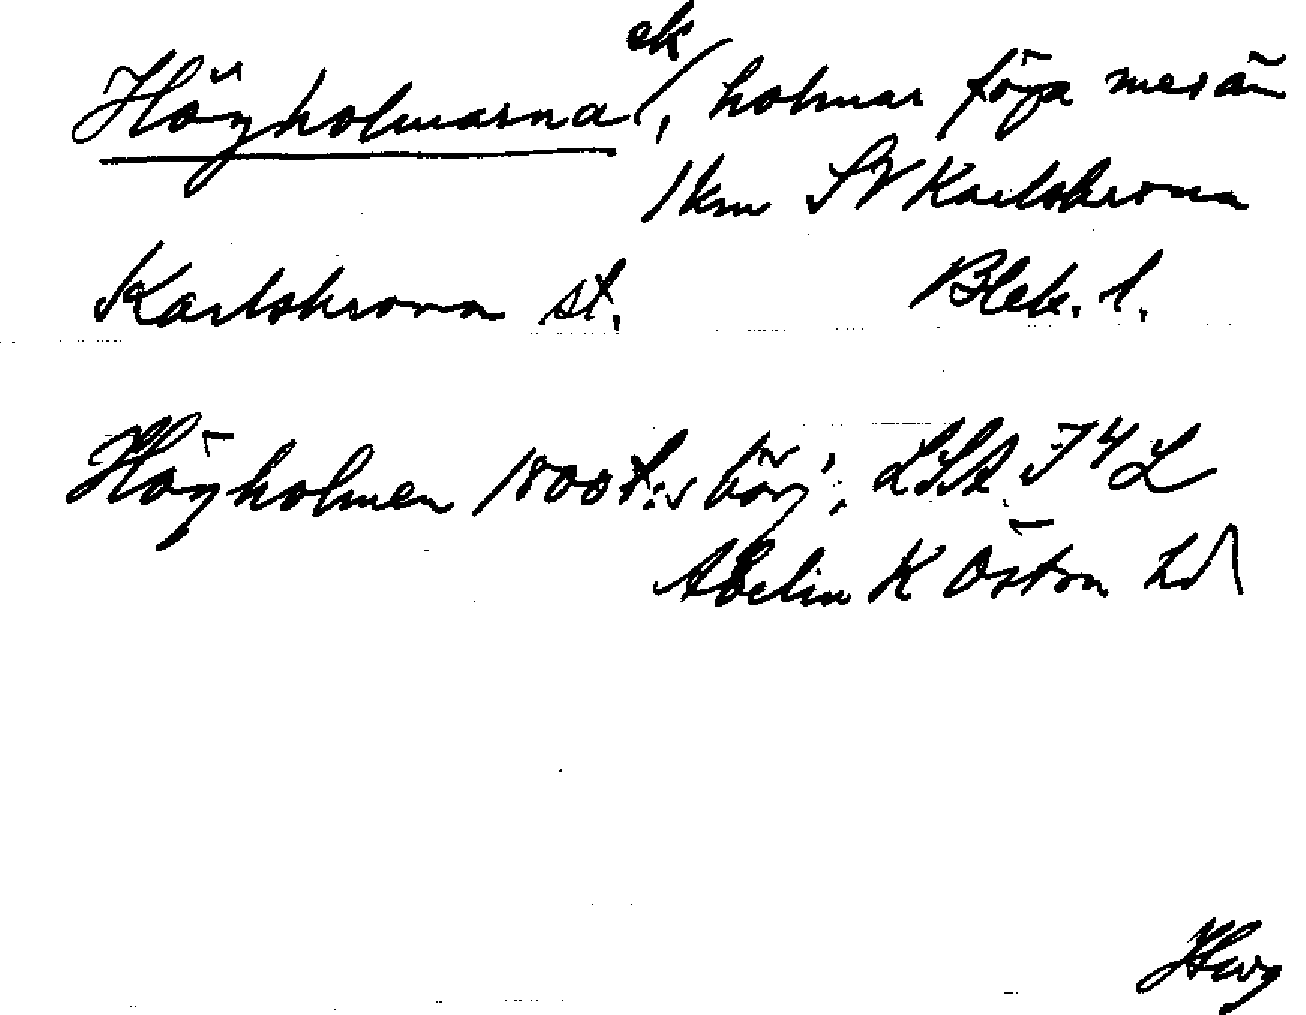 ek
Högholmarna, holmar föga mer än
1 km SV Karlskrona
Karlskrona st. Blek. l.
Högholmen 1800t:s börj.; LSA F4L
Abelin K Öston